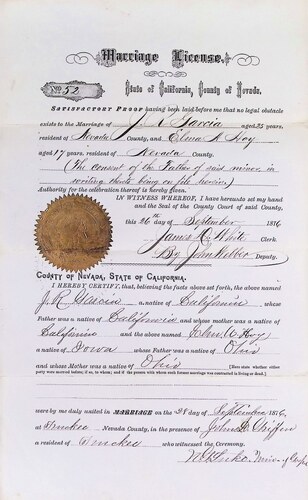 Marriage License.
No. 52
State of California, County of Nevada.
SATISFACTORY PROOF having been laid before me that no legal obstacle
exists to the Marriage of J. R. Garcia aged 35 years,
resident of Nevada County, and Elma A. Hoy
aged 17 years, resident of Nevada County.
(The consent of the Father of said minor, in
writing thereto being on file herein)
Authority for the celebration thereof is hereby given.
IN WITNESS WHEREOF, I have hereunto set my hand
and the Seal of the County Court of said County.
this 26th day of September 1876
James D. White Clerk
By John Webber Deputy.
COUNTY OF NEVADA, STATE OF CALIFORNIA.
I HEREBY CERTIFY, that, believing the facts above set forth, the above named
J. R. Garcia a native of California whose
Father was a native of California and whose mother was a native of
California and the above named Hoy
a native of Iowa whose Father was a native of Ohio
and whose Mother was a native of Ohio [Here state whether either
party were married before; if so, to whom; and if the person with whom such former marriage was contracted is living or dead.]
were by me duly united in MARRIAGE on the 28 day of September 1876,
at Truckee Nevada County, in the presence of John Griffin
a resident of Truckee who witnessed the Ceremony.